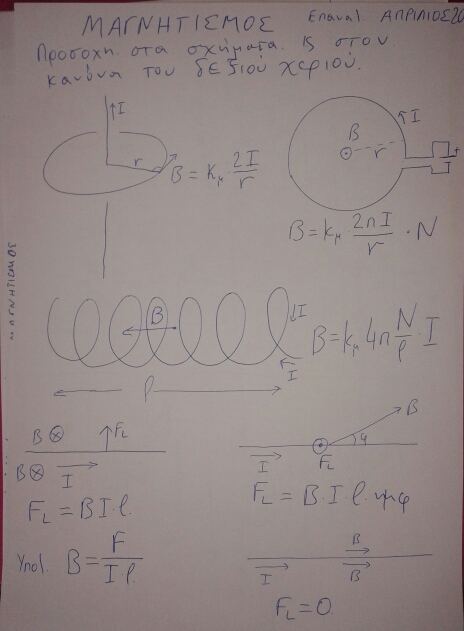 ΜΑΓΝΗΤΙΣΜΟΣ Επαναλ. ΑΠΡΙΛΙΟΣ 20
Προσοχη στα σχήματα. Κς στον
κανόνα του δεξιού χεριού.
I
r
B = Kμ 2I/r
I
B
r
B = Kμ 2πI/r · N
ΜΑΓΝΗΤΙΣΜΟΣ
B
I
I
B = Kμ 4π N/ℓ · I
ℓ
B ⊗ F_L
B ⊗ I
F_L = B I · ℓ.
Υπολ. B = F/I · ℓ.
B
φ
I F_L
F_L = B · I · ℓ · ημφ
B
I B
F_L = 0.